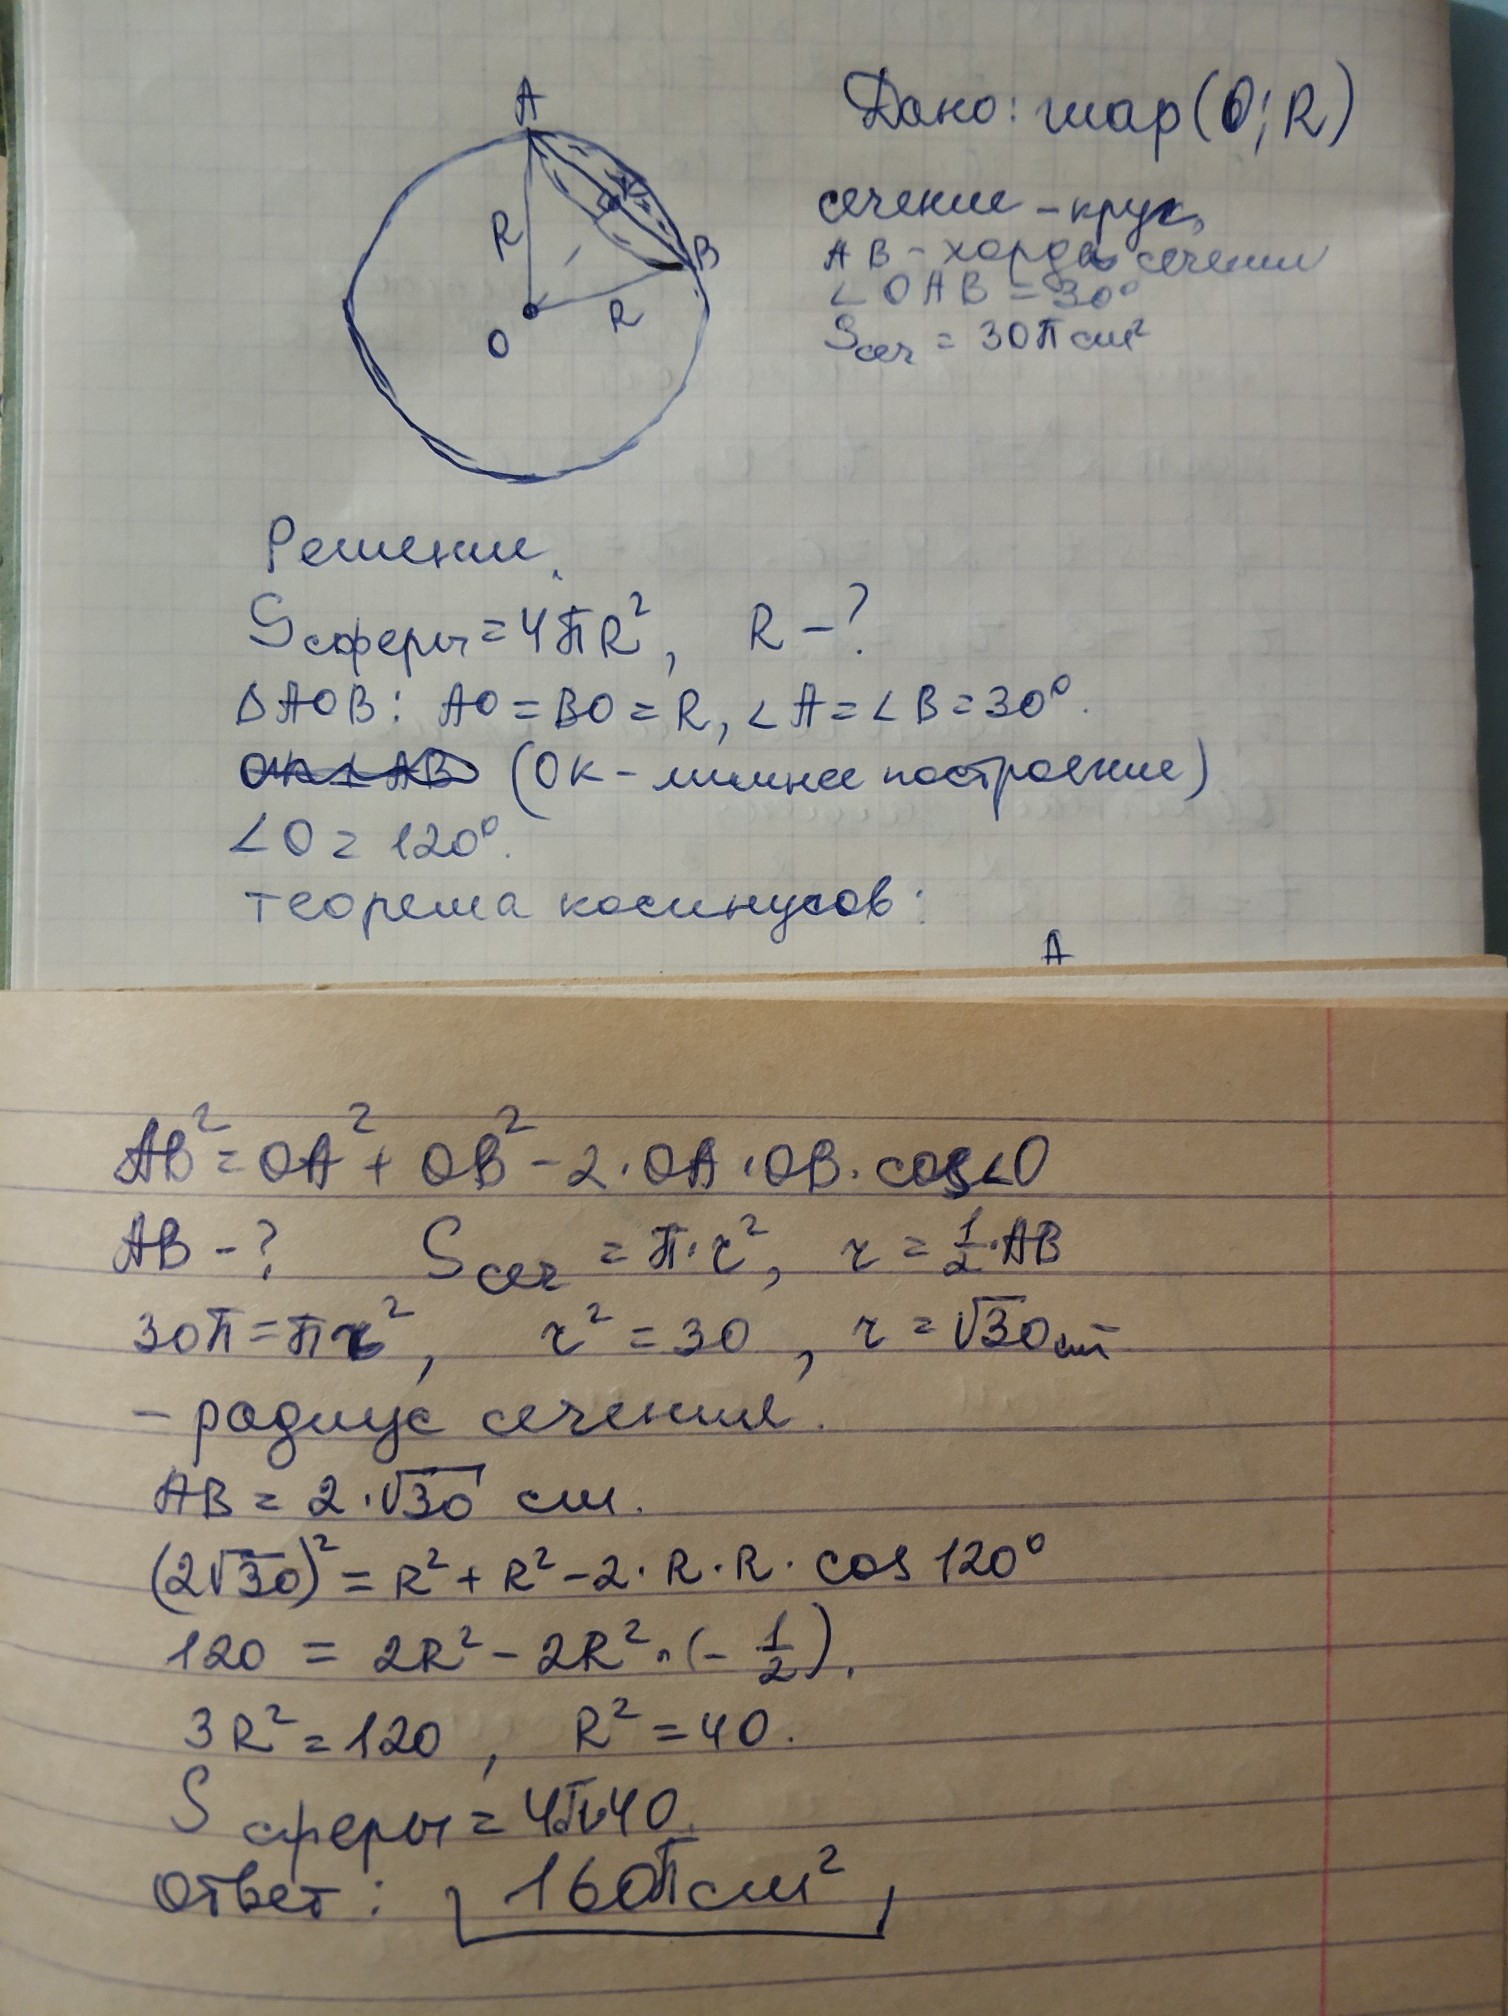 A
Дано: шар (O; R)
сечение - круг,
R
B
AB - хорда сечения
∠OAB = 30°
R
Sсеч = 30π см²
O
Решение.
Sсферы = 4πR², R - ?
ΔAOB: AO = BO = R, ∠A = ∠B = 30°.
OK ⊥ AB (OK - лишнее построение)
∠O = 120°.
теорема косинусов:
A
AB² = OA² + OB² - 2·OA·OB·cos∠O
AB - ? Sсеч = π·r², r = 1/2·AB
30π = πr², r² = 30, r = √30 см
- радиус сечения.
AB = 2·√30 см.
(2√30)² = R² + R² - 2·R·R·cos 120°
120 = 2R² - 2R²·(-1/2).
3R² = 120, R² = 40.
Sсферы = 4π·40.
Ответ: 160π см²